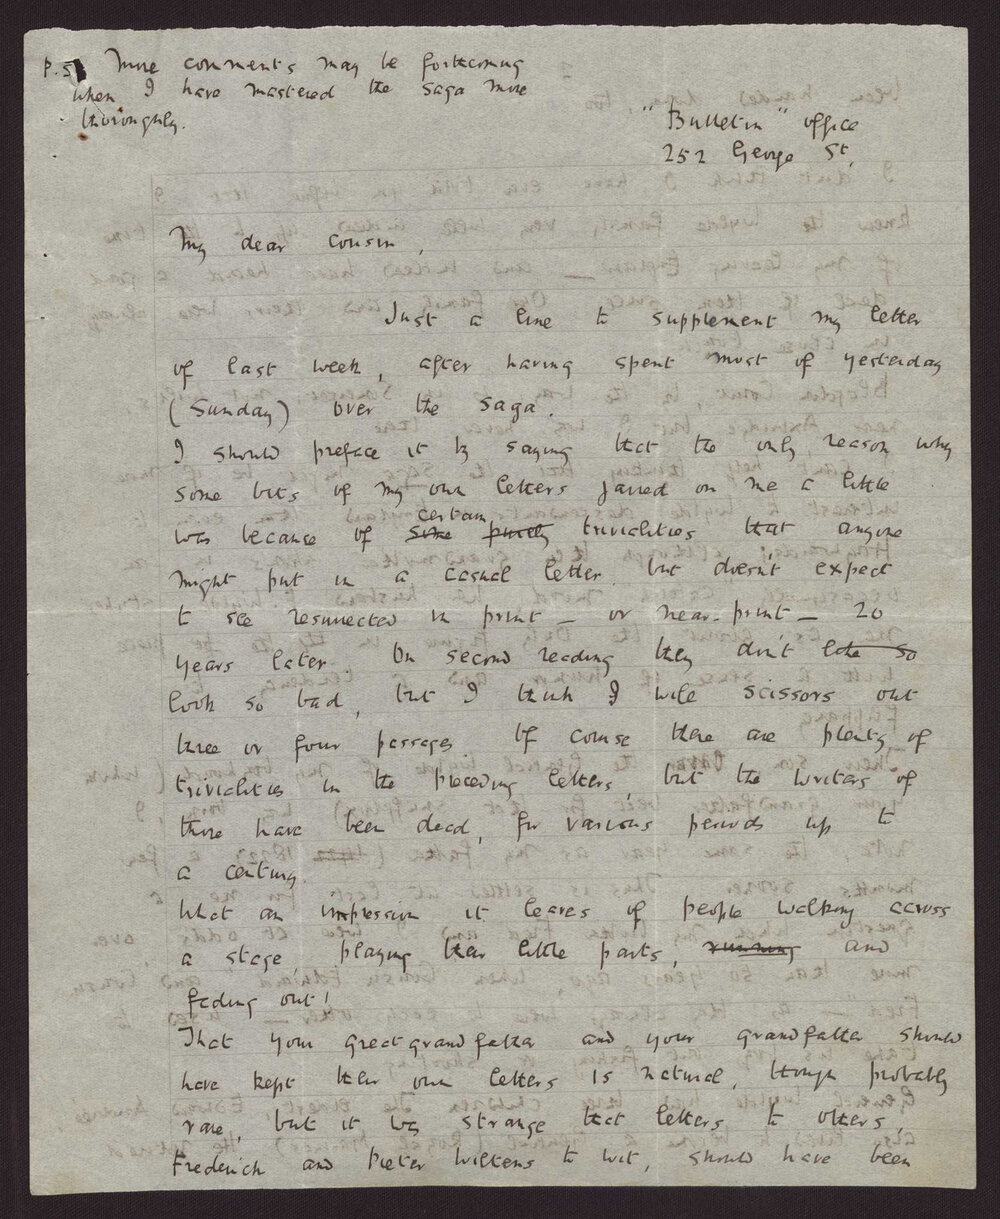 P.S. More comments may be forthcoming
when I have mastered the saga more
thoroughly.
"Bulletin" office
252 George St.
My dear Cousin,
Just a line to supplement my letter
of last week, after having spent most of yesterday
(Sunday) over the saga.
I should preface it by saying that the only reason why
some bits of my own letters jarred on me a little
certain
was because of some purely trivialities that anyone
might put in a casual letter but doesn't expect
to see resurrected in print — or near-print — 20
years later. On second reading they don't so
look so bad, but I think I will scissors out
three or four passages. Of course there are plenty of
trivialities in the preceding letters, but the writers of
those have been dead, for various periods up to
a century.
What an impression it leaves of people walking across
a stage, playing their little parts, running and
fading out!
That your greatgrandfather and your grandfather should
have kept their own letters is natural, though probably
rare, but it was strange that letters to others,
Frederick and Pieter Wilkens to wit, should have been